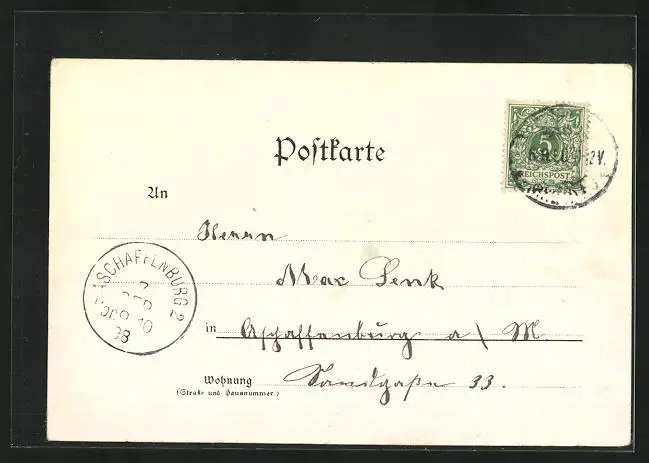 Postkarte
5
REICHSPOST
An
Herrn
Max Senk
ASCHAFFENBURG 2
98
in Aschaffenburg a/ M.
Wohnung Sandgaße 33.
(Straße und Hausnummer.)